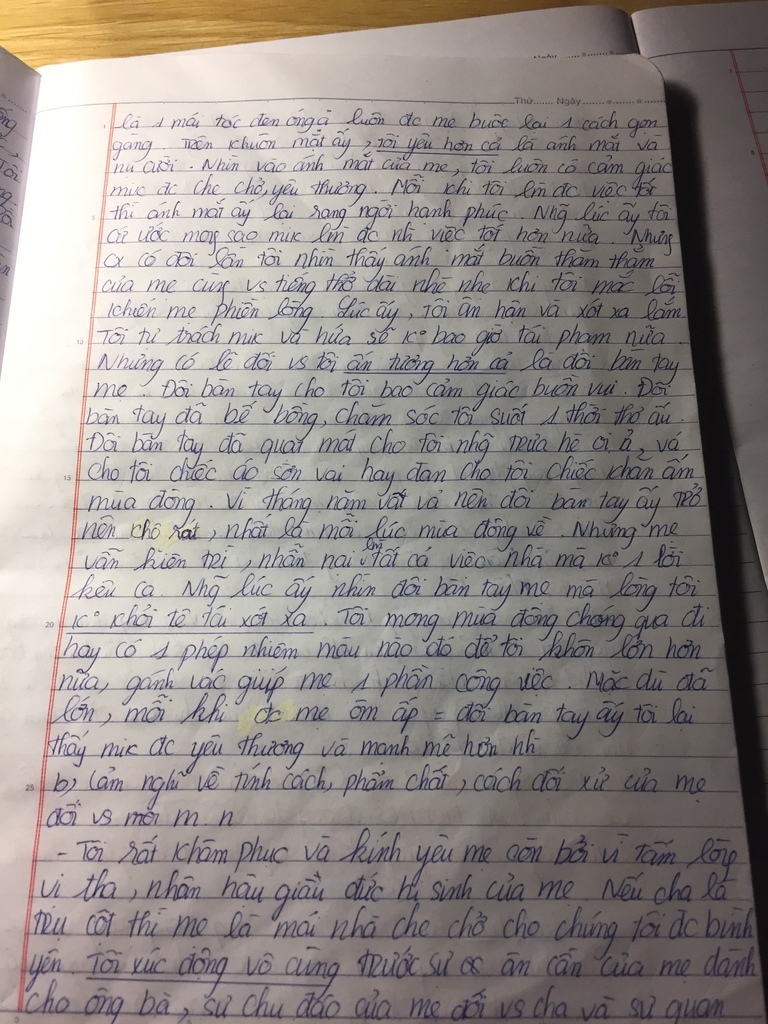 Thứ....... Ngày.......
là 1 mái tóc đen óng ả luôn đc mẹ buộc lại 1 cách gọn
gàng. Trên khuôn mặt ấy, tôi yêu hơn cả là ánh mắt và
nụ cười. Nhìn vào ánh mắt của mẹ, tôi luôn có cảm giác
mik đc che chở, yêu thương. Mỗi khi tôi lm đc việc tốt
thì ánh mắt ấy lại rạng ngời hạnh phúc. Nhg lúc ấy tôi
cứ ước mong sao mik lm đc nh việc tốt hơn nữa. Nhưng
cx có đôi lần tôi nhìn thấy ánh mắt buồn thăm thẳm
của mẹ cùng vs tiếng thở dài nhè nhẹ khi tôi mắc lỗi
khiến mẹ phiền lòng. Lúc ấy, tôi ân hận và xót xa lắm
Tôi tự trách mik và hứa sẽ k° bao giờ tái phạm nữa.
Nhưng có lẽ đối vs tôi ấn tượng hơn cả là đôi bàn tay
mẹ. Đôi bàn tay cho tôi bao cảm giác buồn vui. Đôi
bàn tay đã bế bồng, chăm sóc tôi suốt 1 thời thơ ấu.
Đôi bàn tay đã quạt mát cho tôi nhg trưa hè oi ả, vá
cho tôi chiếc áo sờn vai hay đan cho tôi chiếc khăn ấm
mùa đông. Vì tháng năm vất vả nên đôi bàn tay ấy trở
nên thô ráp, nhất là mỗi lúc mùa đông về. Nhưng mẹ
vẫn kiên trì, nhẫn nại lm tất cả việc nhà mà k° 1 lời
kêu ca. Nhg lúc ấy nhìn đôi bàn tay mẹ mà lòng tôi
k° khỏi tê tái xót xa. Tôi mong mùa đông chóng qua đi
hay có 1 phép nhiệm màu nào đó để tôi khôn lớn hơn
nữa, gánh vác giúp mẹ 1 phần công việc. Mặc dù đã
lớn, mỗi khi đc mẹ ôm ấp = đôi bàn tay ấy tôi lại
thấy mik đc yêu thương và mạnh mẽ hơn nh
b, Cảm nghĩ về tính cách, phẩm chất, cách đối xử của mẹ
đối vs mọi m.n
- Tôi rất khâm phục và kính yêu mẹ còn bởi vì tấm lòng
vị tha, nhân hậu giầu đức hi sinh của mẹ. Nếu cha là
trụ cột thì mẹ là mái nhà che chở cho chúng tôi đc bình
yên. Tôi xúc động vô cùng trước sự ân cần của mẹ dành
cho ông bà, sự chu đáo của mẹ đối vs cha và sự quan